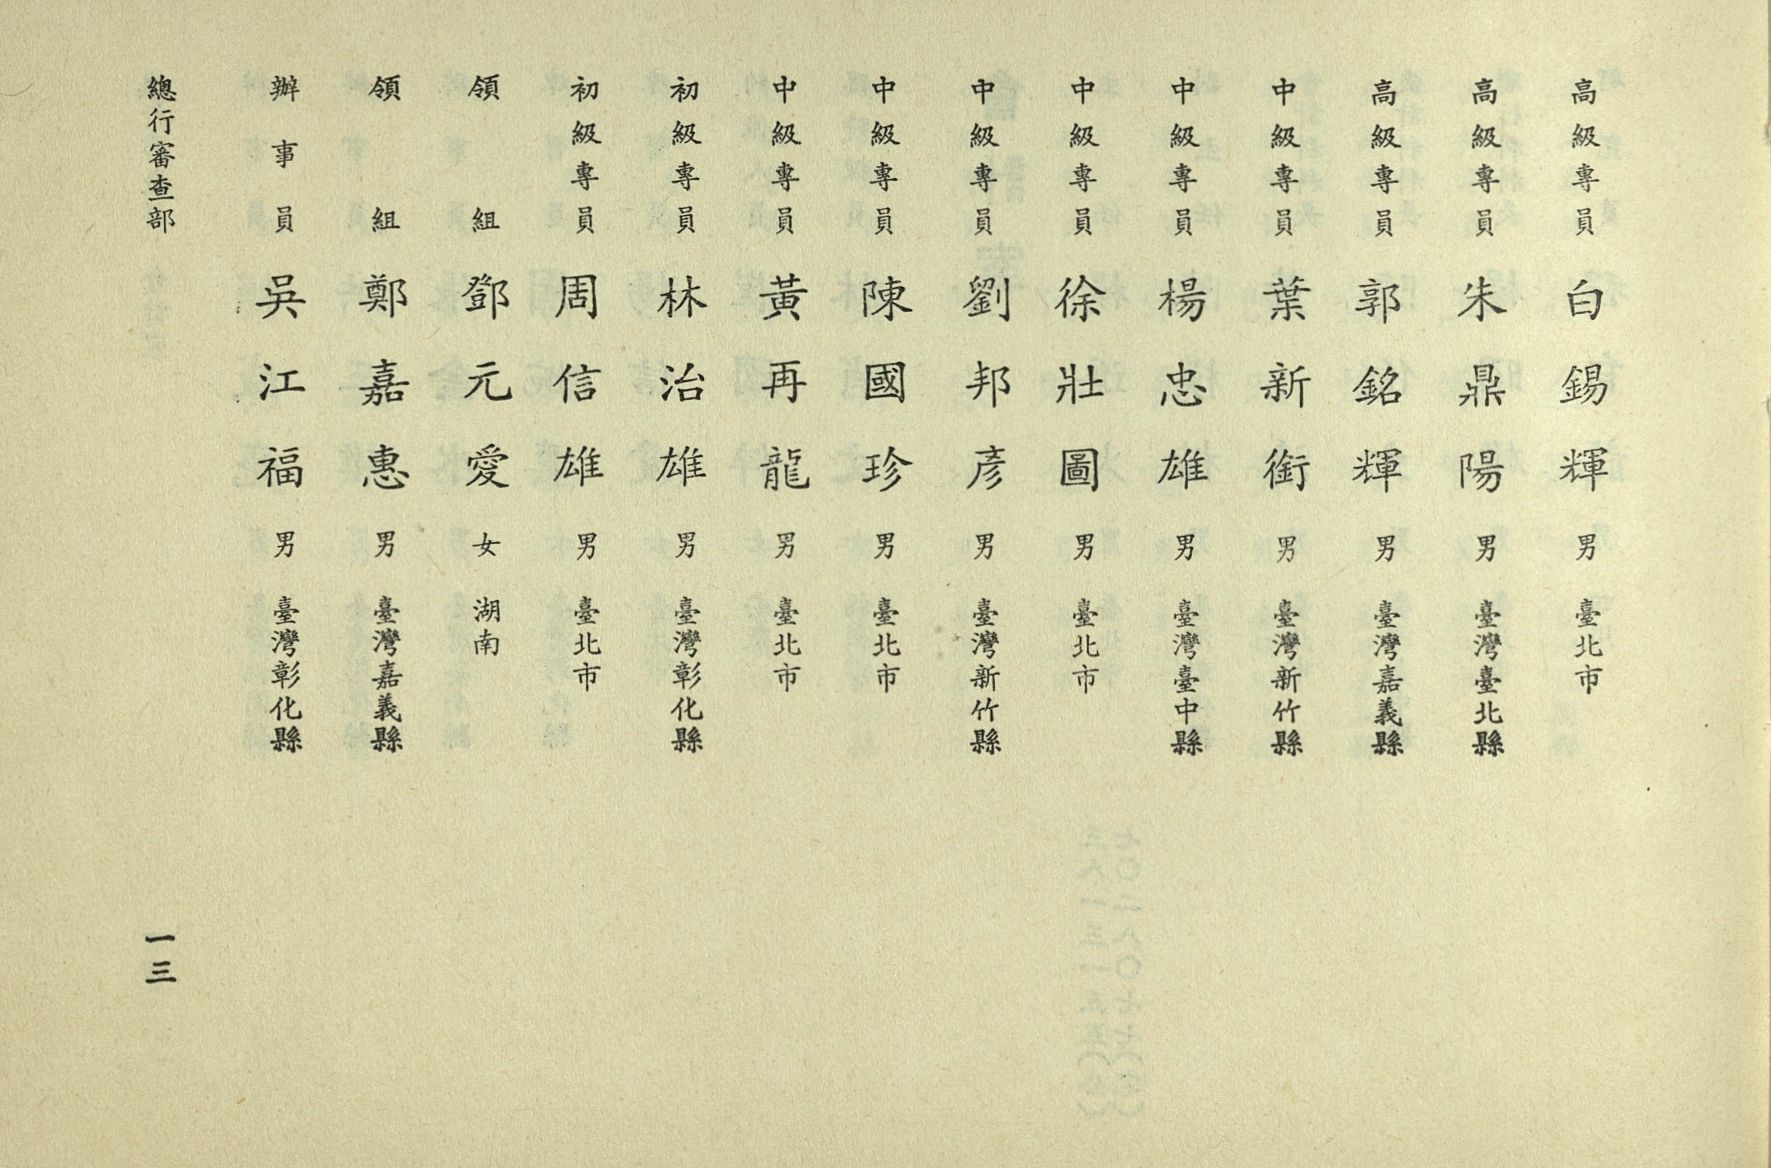 高級專員 白錫輝 男 臺北市
高級專員 朱鼎陽 男 臺灣臺北縣
高級專員 郭銘輝 男 臺灣嘉義縣
中級專員 葉新銜 男 臺灣新竹縣
中級專員 楊忠雄 男 臺灣臺中縣
中級專員 徐壯圖 男 臺北市
中級專員 劉邦彦 男 臺灣新竹縣
中級專員 陳國珍 男 臺北市
中級專員 黃再龍 男 臺北市
初級專員 林治雄 男 臺灣彰化縣
初級專員 周信雄 男 臺北市
領組 鄧元愛 女 湖南
領組 鄭嘉惠 男 臺灣嘉義縣
辦事員 吳江福 男 臺灣彰化縣
總行審查部
一三